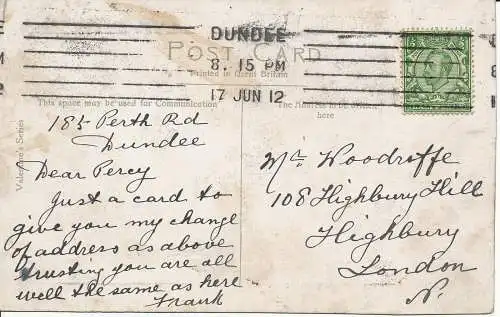 DUNDEE
8. 15 PM
17 JUN 12
POST CARD
Printed in Great Britain
This space may be used for Communication
The Address to be
here
Valentine's Series
185 Perth Rd
Dundee
Dear Percy
Just a card to
give you my change
of address as above
trusting you are all
well the same as here
Frank
Mr. Woodroffe
108 Highbury Hill
Highbury
London
N.